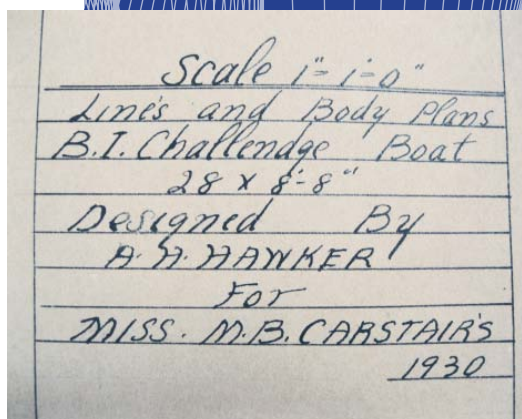 Scale 1" = 1'-0"
Line's and Body Plans
B.I. Challendge Boat
28 x 8'-8"
Designed By
A. H. HAWKER
For
MISS. M.B. CARSTAIR'S
1930